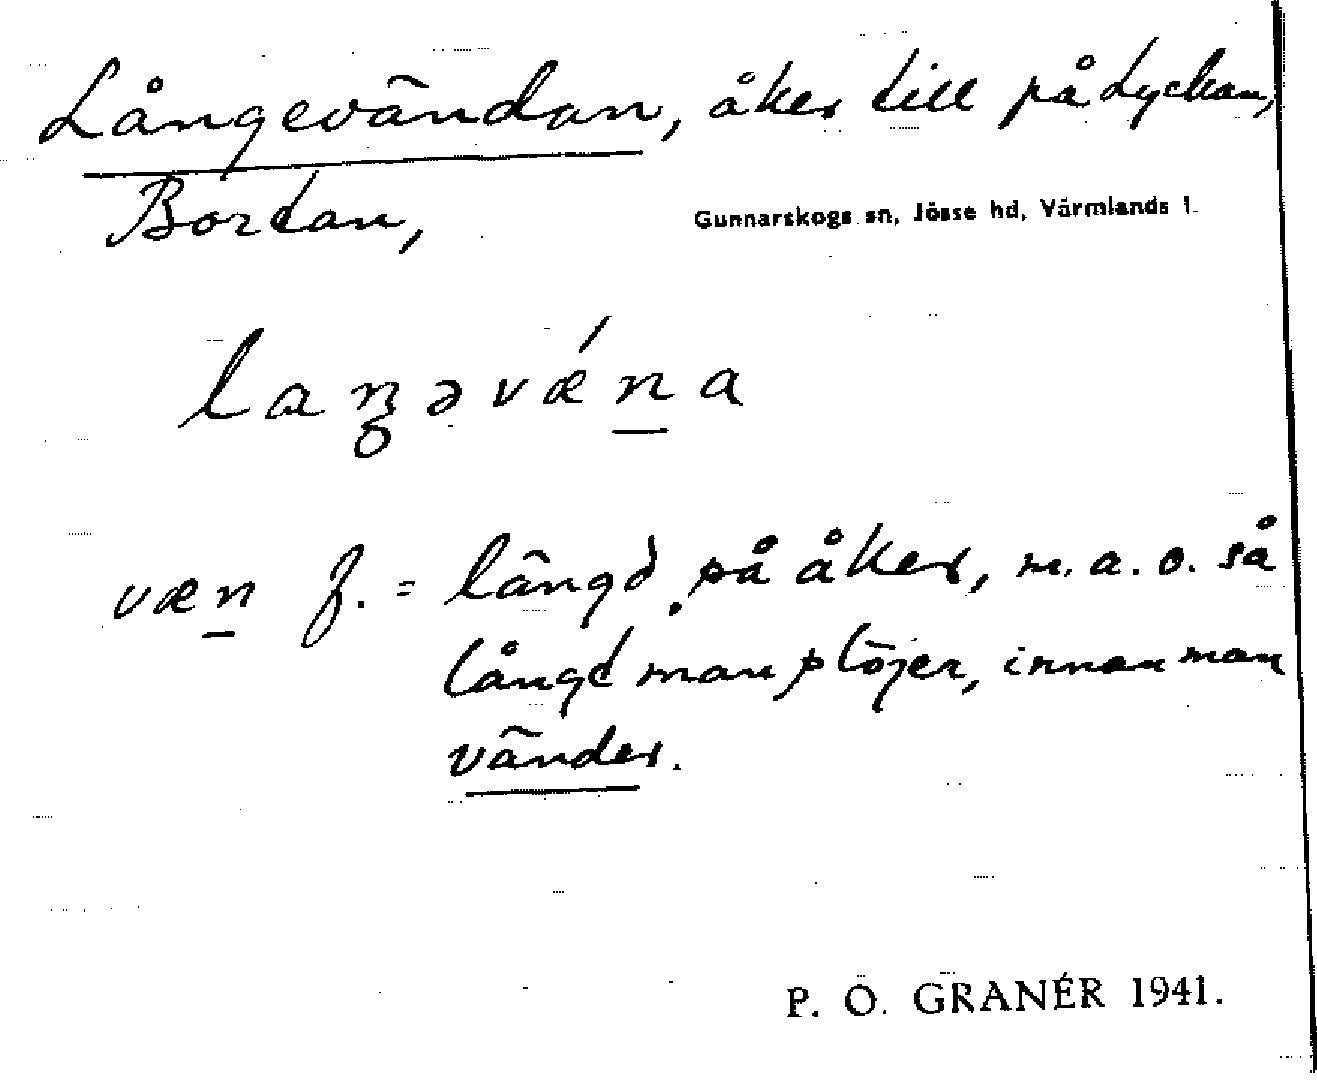 Långevändan, åker till på Lyckan,
Bortan,
Gunnarskogs sn, Jösse hd, Värmlands l.
laŋəvǽna
væn f. = längd på åker, m.a.o. så
långt man plöjer, innan man
vänder.
P. O. GRANÉR 1941.